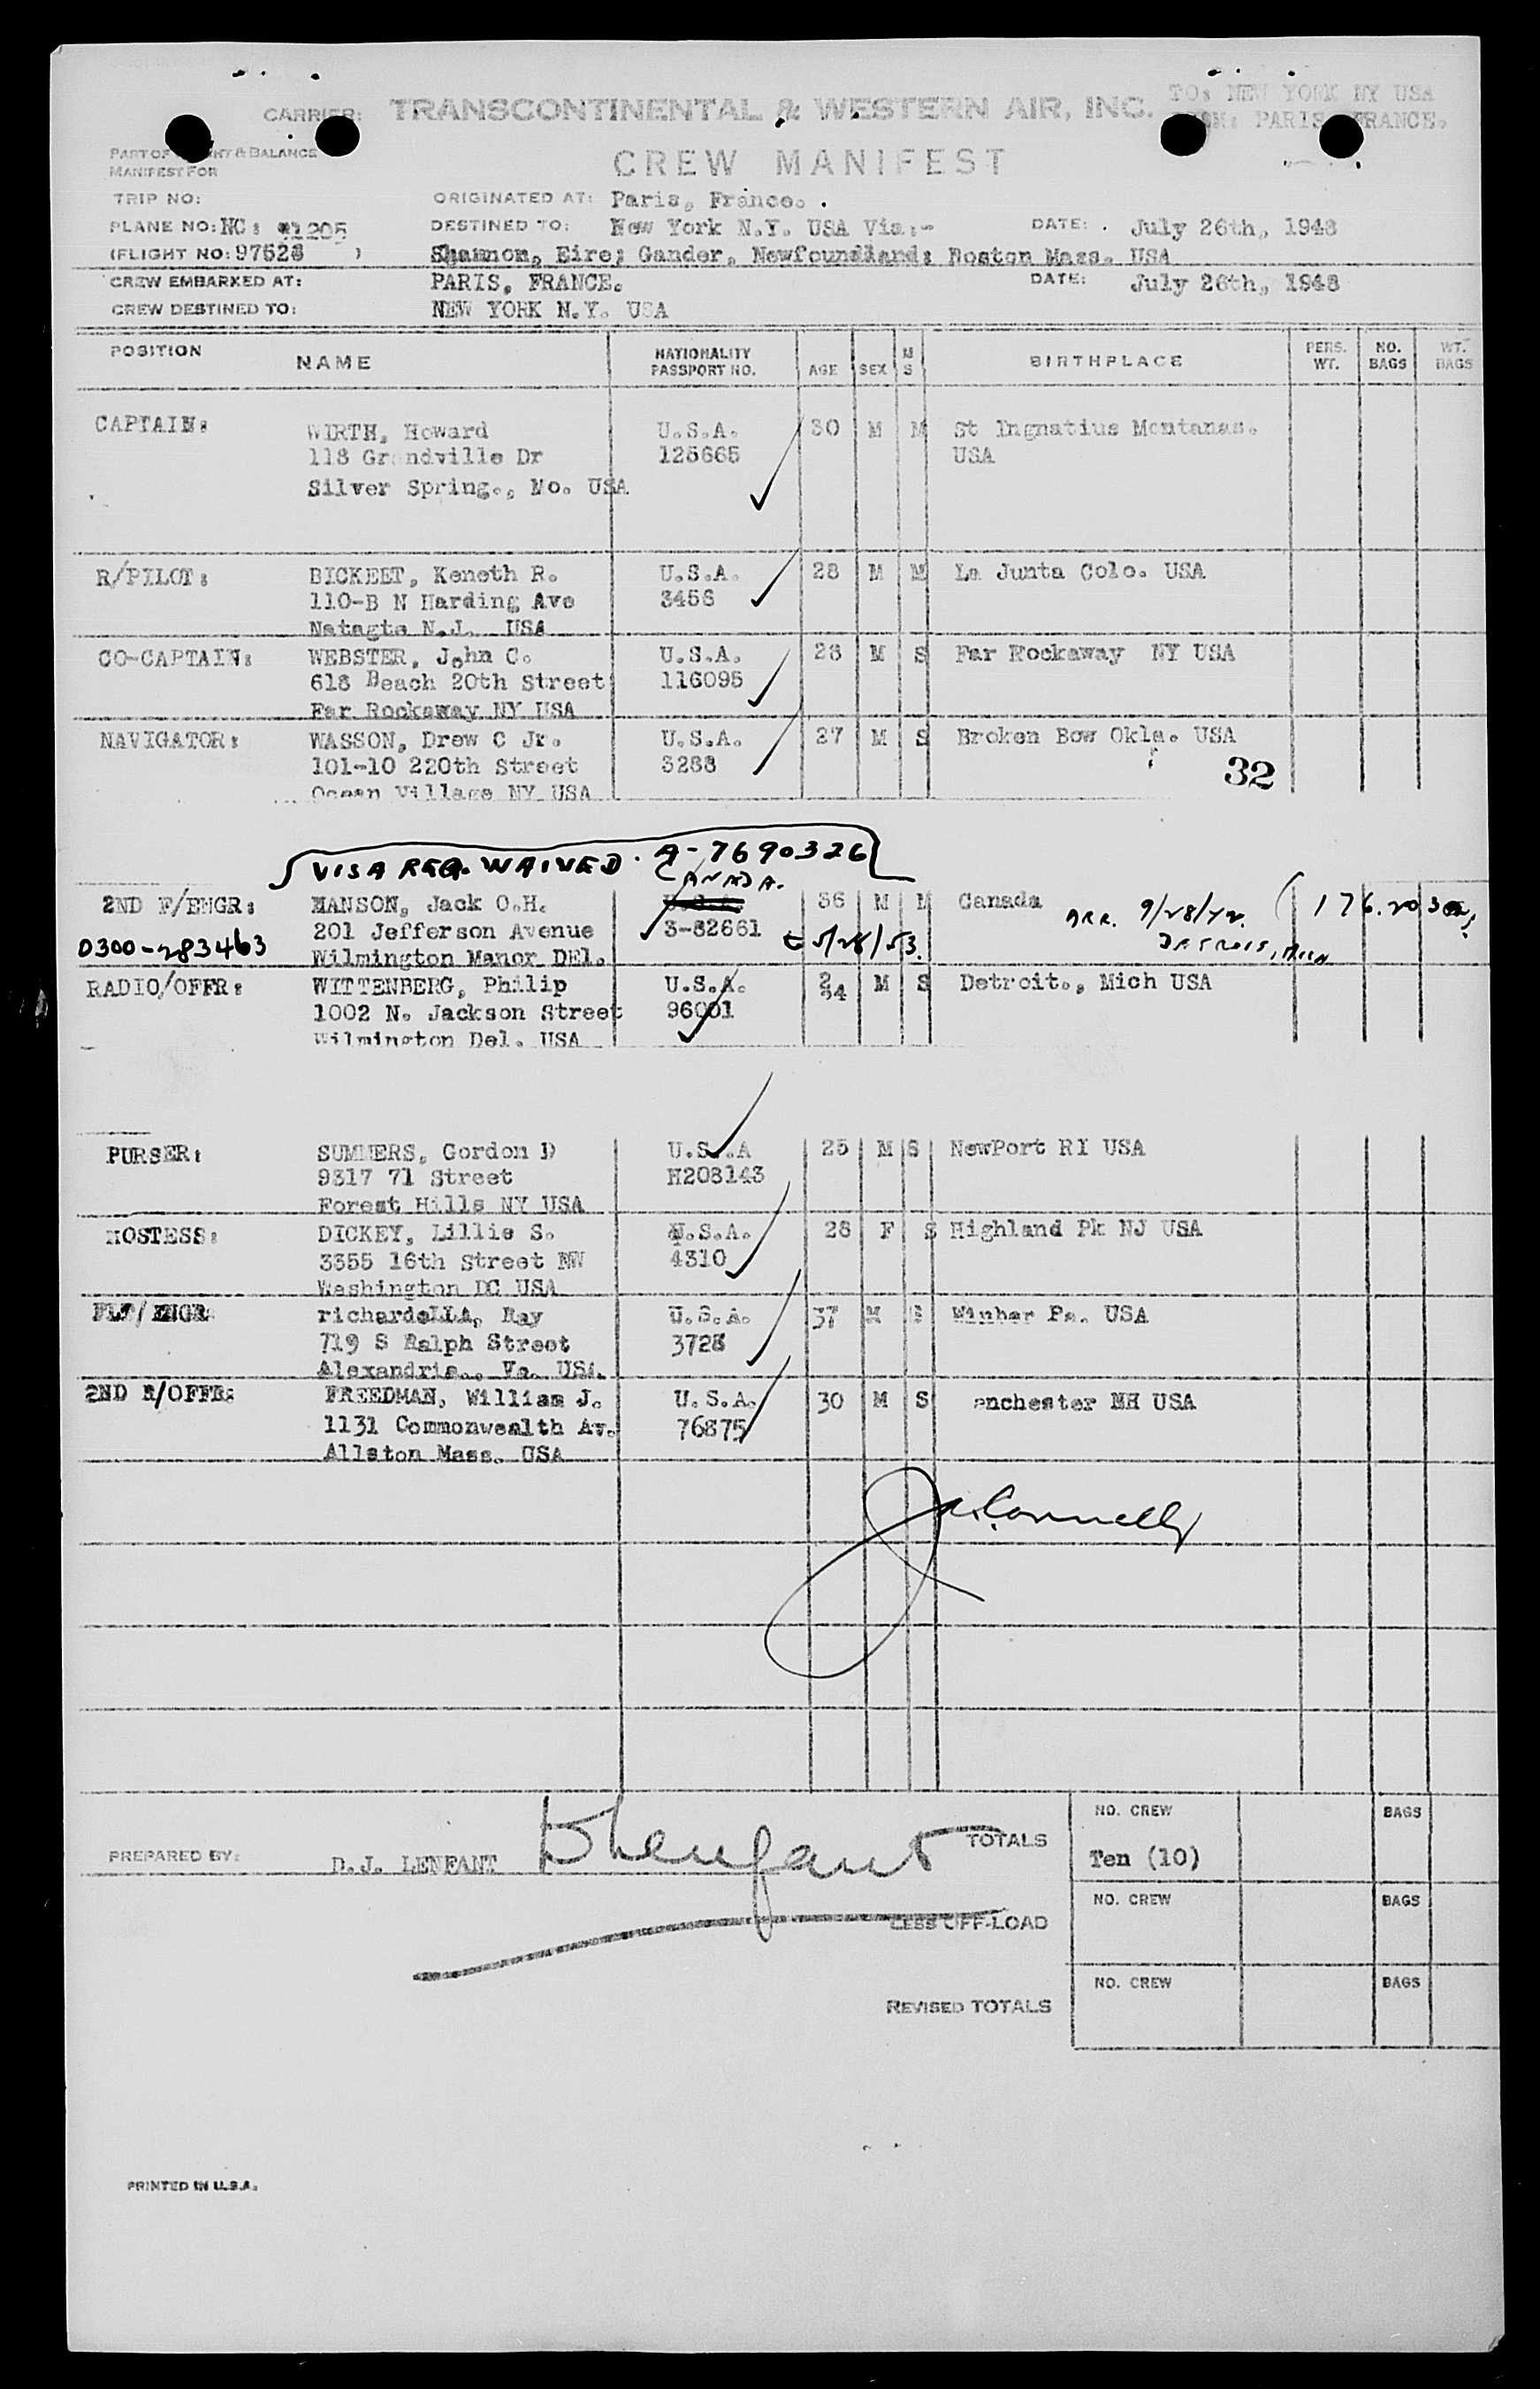 TO: NEW YORK NY USA
CARRIER: TRANSCONTINENTAL & WESTERN AIR, INC.
PARIS, FRANCE.
PART OF & BALANCE
MANIFEST FOR
CREW MANIFEST
TRIP NO: ORIGINATED AT: Paris, France. .
PLANE NO: NC: DESTINED TO: New York N.Y. USA Via:- DATE: . July 26th, 1948
(FLIGHT NO: 97528 ) Shannon, Eire; Gander, Newfoundland; Boston Mass. USA
CREW EMBARKED AT: PARIS, FRANCE. DATE: July 26th, 1948
CREW DESTINED TO: NEW YORK N.Y. USA
POSITION NAME NATIONALITY PASSPORT NO. AGE SEX M S BIRTHPLACE PERS. WT. NO. BAGS WT. BAGS
CAPTAIN: WIRTH, Howard U.S.A. 30 M M St Ingnatius Montanas.
118 Grandville Dr 125665 USA
Silver Spring., Mo. USA
R/PILOT: BICKEET, Keneth R. U.S.A. 28 M M La Junta Colo. USA
110-B N Harding Ave 3458
Natagte N.J. USA
CO-CAPTAIN: WEBSTER, John C. U.S.A. 28 M S Far Rockaway NY USA
618 Beach 20th Street 116095
Far Rockaway NY USA
NAVIGATOR: WASSON, Drew C Jr. U.S.A. 27 M S Broken Bow Okla. USA
101-10 220th Street 3288 32
Ocean Village NY USA
VISA REQ. WAIVED. A-7690326
CANADA.
2ND F/ENGR: MANSON, Jack O.H. U.S.A. 36 M M Canada ARR. 9/28/42. (176.20
0300-283463 201 Jefferson Avenue 3-82661 5/28/53. DETROIT, MICH
Wilmington Manor DEl.
RADIO/OFFR: WITTENBERG, Philip U.S.A. M S Detroit., Mich USA
1002 N. Jackson Street 96001
Wilmington Del. USA
PURSER: SUMMERS, Gordon D U.S.A 25 M S NewPort RI USA
9317 71 Street H208143
Forest Hills NY USA
HOSTESS: DICKEY, Lillie S. U.S.A. 28 F S Highland Pk NJ USA
3355 16th Street NW 4310
Washington DC USA
FLT/ENGR: richardeLLA, Ray U.S.A. 37 M S Winber Pa. USA
719 S Ralph Street 3728
Alexandria., Va. USA.
2ND R/OFFR: FREEDMAN, William J. U.S.A. 30 M S anchester NH USA
1131 Commonwealth Av. 76875
Allston Mass. USA
PREPARED BY: D.J. LENFANT DLenfant TOTALS NO. CREW Ten (10) BAGS
LESS OFF-LOAD NO. CREW BAGS
REVISED TOTALS NO. CREW BAGS
PRINTED IN U.S.A.